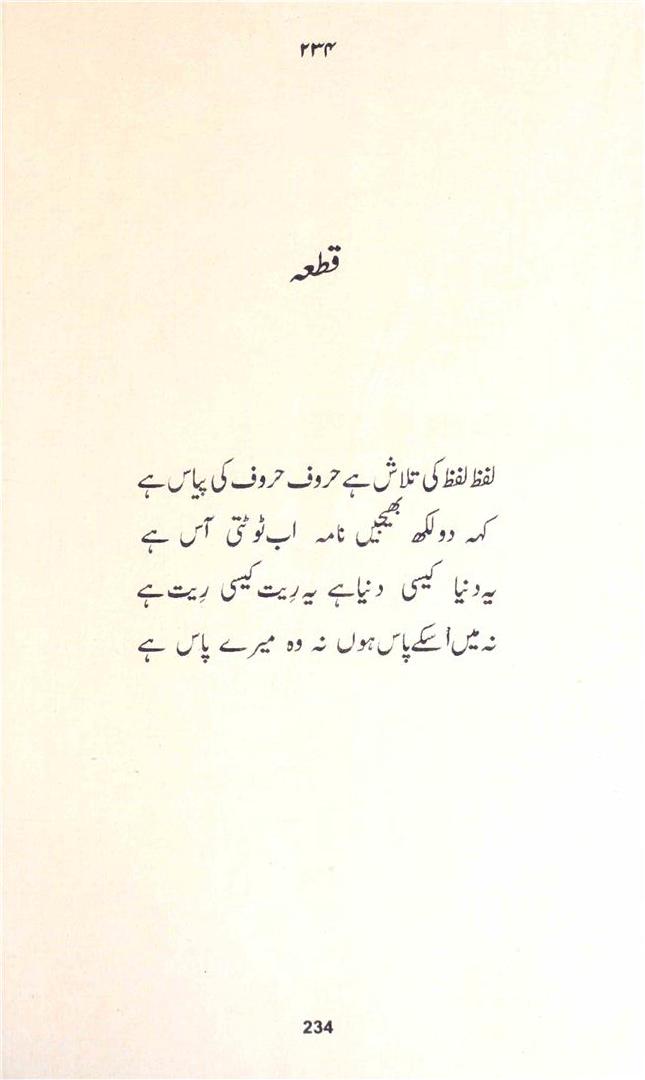 ۲۳۴
قطعہ
لفظ لفظ کی تلاش ہے حروف حروف کی پیاس ہے
کہہ دو لکھ بھیجیں نامہ اب ٹوٹتی آس ہے
یہ دنیا کیسی دنیا ہے یہ رِیت کیسی رِیت ہے
نہ میں اُسکے پاس ہوں نہ وہ میرے پاس ہے
234